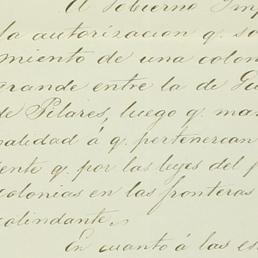 El Gobierno Imp
la autorizacion q. so
miento de una colon
grande entre la de Gu
de Pilares, luego q. man
nalidad á q. pertenercan
ente q. por las leyes del p
colonias en las fronteras
colindante.
En cuanto á las es